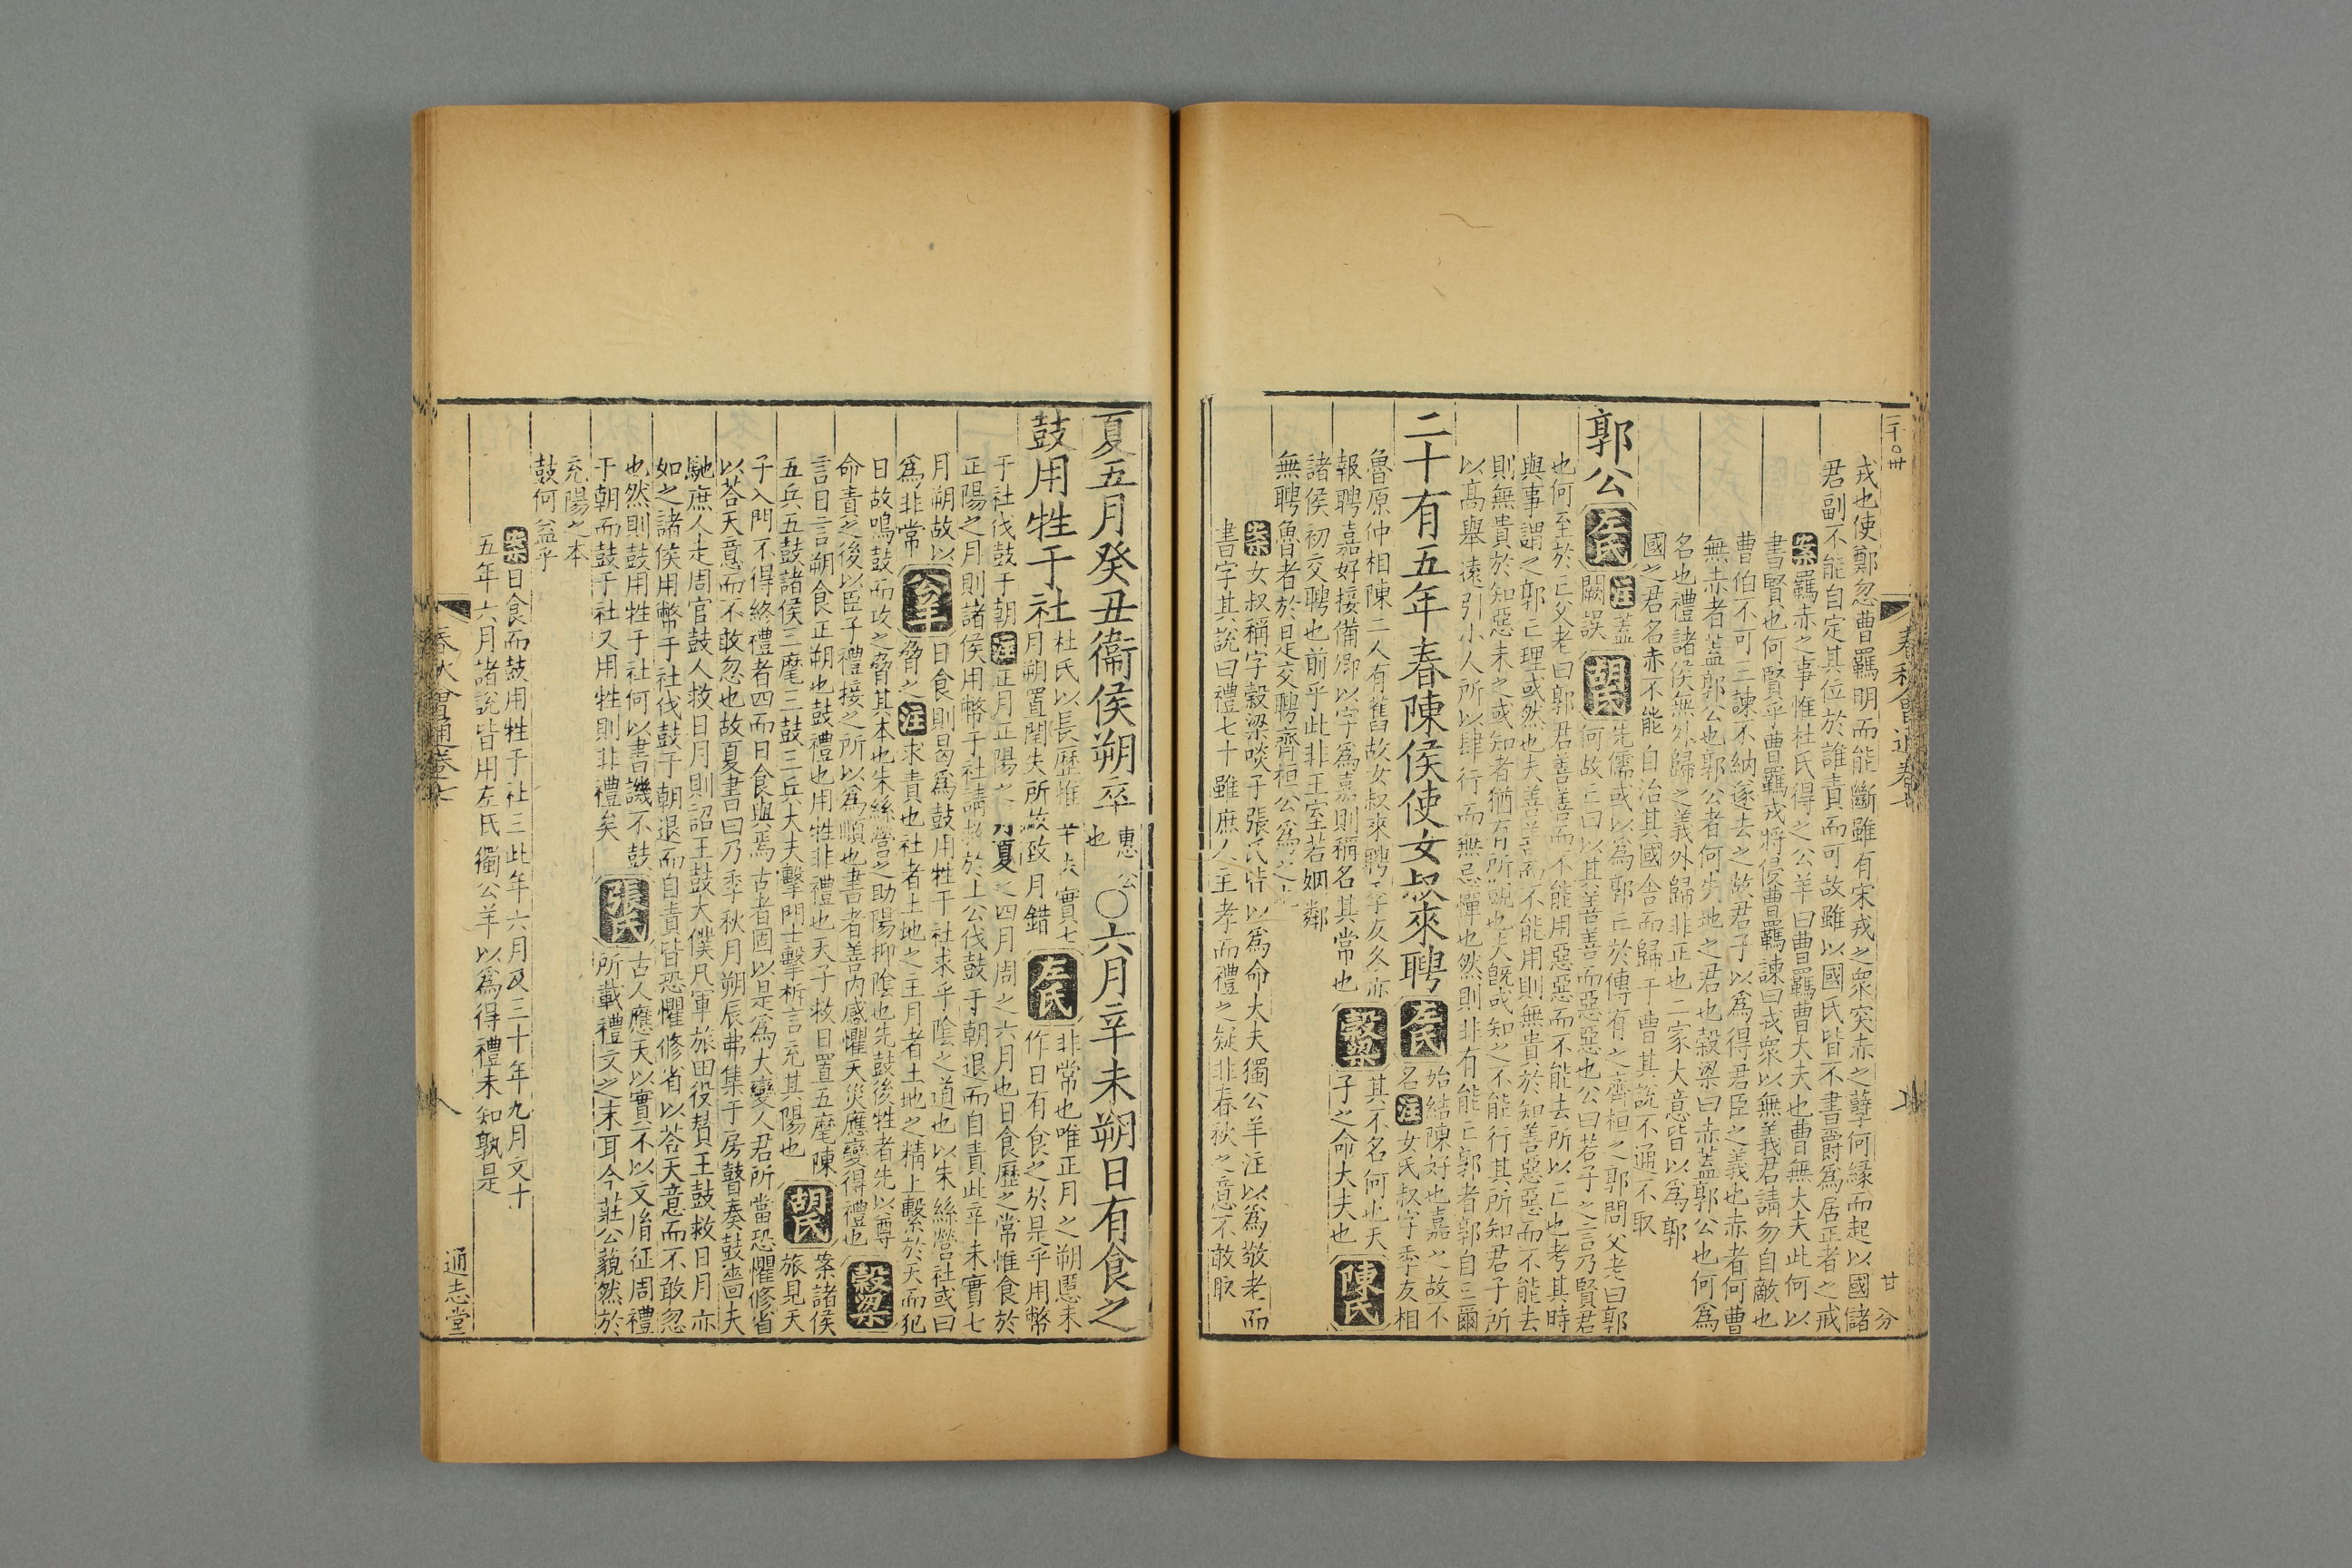 戎也使鄭忽曹羈明而能斷雖有宋戎之衆突赤之孽何緣而起以國儲
君副不能自定其位於誰責而可故雖以國氏皆不書爵爲居正者之戒
案羈赤之事惟杜氏得之公羊曰曹羈曹大夫也曹無大夫此何以
書賢也何賢乎曹羈戎將侵曹羈諫曰戎衆以無義君請勿自敵也
曹伯不可三諫不納遂去之故君子以爲得君臣之義也赤者何曹
無赤者蓋郭公也郭公者何失地之君也穀梁曰赤蓋郭公也何爲
名也禮諸侯無外歸之義外歸非正也二家大意皆以爲郭
國之君名赤不能自治其國舍而歸于曹其說不通不取
郭公左氏闕誤注蓋
胡氏先儒或以爲郭亡於傳有之齊桓之郭問父老曰郭
何故亡曰以其善善而惡惡也公曰若子之言乃賢君
也何至於亡父老曰郭君善善而不能用惡惡而不能去所以亡也考其時
與事謂之郭亡理或然也夫善善而不能用則無貴於知善惡惡而不能去
則無貴於知惡未之或知者猶有所覬也夫旣或知之不能行其所知君子所
以髙舉遠引小人所以肆行而無忌憚也然則非有能亡郭者郭自亡爾
二十有五年春陳侯使女叔來聘左氏始結陳好也嘉之故不
名注女氏叔字季友相
魯原仲相陳二人有舊故女叔來聘季友冬亦
報聘嘉好接備卿以字爲嘉則稱名其常也穀梁其不名何也天
子之命大夫也陳氏
諸侯初交聘也前乎此非王室若姻鄰
無聘魯者於是交聘齊桓公爲之也
案女叔稱字穀梁啖子張氏皆以爲命大夫獨公羊注以爲敬老而
書字其說曰禮七十雖庶人主孝而禮之疑非春秋之意不敢取
春秋會通卷七
夏五月癸丑衞侯朔卒惠公也〇六月辛未朔日有食之
鼓用牲于社杜氏以長歷推辛未實七
月朔置閏失所故致月錯左氏非常也唯正月之朔慝未
作日有食之於是乎用幣
于社伐鼓于朝注正月正陽之月夏之四月周之六月也日食歷之常惟食於
正陽之月則諸侯用幣于社請救於上公伐鼓于朝退而自責此辛未實七
月朔故以
爲非常公羊日食則曷爲鼓用牲于社求乎陰之道也以朱絲營社或曰
脅之注求責也社者土地之主月者土地之精上繫於天而犯
日故鳴鼓而攻之脅其本也朱絲營之助陽抑陰也先鼓後牲者先以尊
命責之後以臣子禮接之所以爲順也書者善內感懼天災應變得禮也穀梁
言日言朔食正朔也鼓禮也用牲非禮也天子救日置五麾陳
五兵五鼓諸侯三麾三鼓三兵大夫擊門士擊柝言充其陽也胡氏案諸侯
旅見天
子入門不得終禮者四而日食與焉古者固以是爲大變人君所當恐懼修省
以荅天意而不敢忽也故夏書曰乃季秋月朔辰弗集于房瞽奏鼓嗇夫
馳庶人走周官鼓人救日月則詔王鼓大僕凡軍旅田役贊王鼓救日月亦
如之諸侯用幣于社伐鼓于朝退而自責皆恐懼修省以荅天意而不敢忽
也然則鼓用牲于社何以書譏不鼓
于朝而鼓于社又用牲則非禮矣張氏古人應天以實不以文胤征周禮
所載禮文之末耳今莊公藐然於
充陽之本
鼓何益乎
案日食而鼓用牲于社三此年六月及三十年九月文十
五年六月諸說皆用左氏獨公羊以爲得禮未知孰是
春秋會通卷七
通志堂